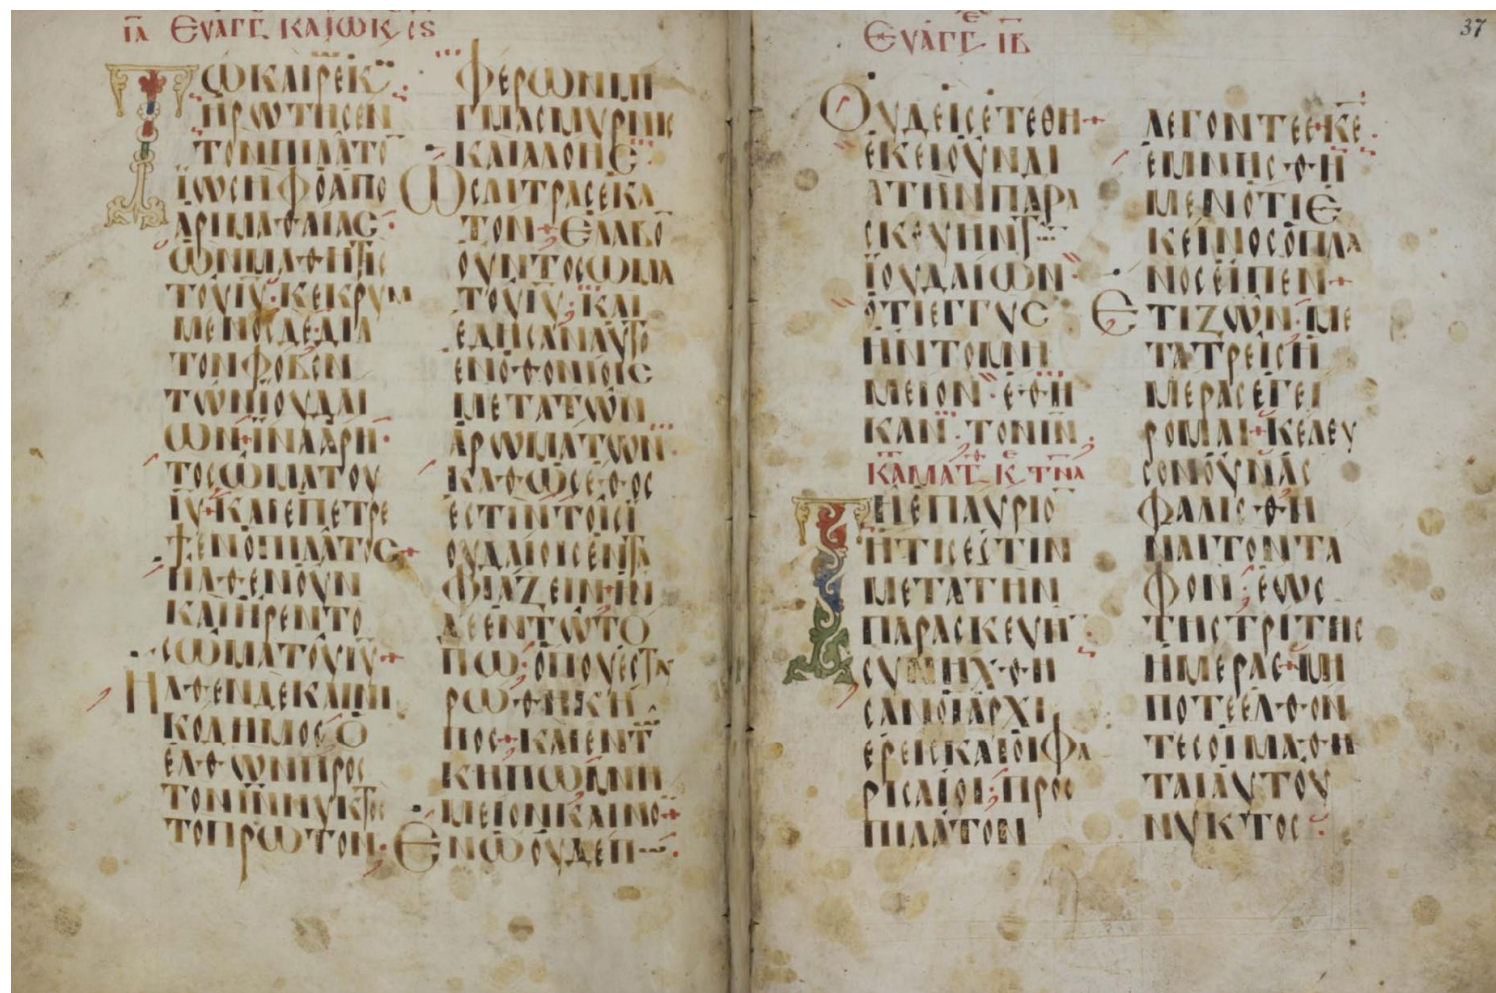 ΙΑ ΕΥΑΓΓ. ΚΑ ΙΩ Κ ΙϚ
ΤΩ ΚΑΙΡ ΕΚ
ΗΡΩΤΗСΕΝ
ΤΟΝ ΠΙΛΑΤΟ
ΪΩСΗΦ Ο ΑΠΟ
ΑΡΙΜΑΘΑΙΑС
ΩΝ ΜΑΘΗΤΗС
ΤΟΥ ΙΥ· ΚΕΚΡΥΜ
ΜΕΝΟС ΔΕ ΔΙΑ
ΤΟΝ ΦΟΒΟΝ
ΤΩΝ ΪΟΥΔΑΙ
ΩΝ· ΪΝΑ ΑΡΗ
ΤΟ СΩΜΑ ΤΟΥ
ΙΥ· ΚΑΙ ΕΠΕΤΡΕ
ΨΕΝ Ο ΠΙΛΑΤΟС
ΗΛΘΕΝ ΟΥΝ
ΚΑΙ ΗΡΕΝ ΤΟ
СΩΜΑ ΤΟΥ ΙΥ
ΗΛΘΕΝ ΔΕ ΚΑΙ ΝΙ
ΚΟΔΗΜΟС Ο
ΕΛΘΩΝ ΠΡΟС
ΤΟΝ ΙΝ ΝΥΚΤΟС
ΤΟ ΠΡΩΤΟΝ·
ΦΕΡΩΝ ΜΙ
ΓΜΑ СΜΥΡΝΗС
ΚΑΙ ΑΛΟΗС
ΩС ΛΙΤΡΑС ΕΚΑ
ΤΟΝ· ΕΛΑΒΟ
ΟΥΝ ΤΟ СΩΜΑ
ΤΟΥ ΙΥ· ΚΑΙ
ΕΔΗСΑΝ ΑΥΤΟ
ΕΝ ΟΘΟΝΙΟΙС
ΜΕΤΑ ΤΩΝ
ΑΡΩΜΑΤΩΝ
ΚΑΘΩС ΕΘΟС
ΕСΤΙΝ ΤΟΙС Ϊ
ΟΥΔΑΙΟΙС ΕΝΤΑ
ΦΙΑΖΕΙΝ· ΗΝ
ΔΕ ΕΝ ΤΩ ΤΟ
ΠΩ· ΟΠΟΥ ΕСΤΑΥ
ΡΩΘΗ ΚΗ
ΠΟС· ΚΑΙ ΕΝ Τ
ΚΗΠΩ ΜΝΗ
ΜΕΙΟΝ ΚΑΙΝΟ
ΕΝ Ω ΟΥΔΕΠ
ΕΥΑΓΓ ΙΒ
37
ΟΥΔΕΙС ΕΤΕΘΗ·
ΕΚΕΙ ΟΥΝ ΔΙ
Α ΤΗΝ ΠΑΡΑ
СΚΕΥΗΝ Τ
ΪΟΥΔΑΙΩΝ
ΟΤΙ ΕΓΓΥС
ΗΝ ΤΟ ΜΝΗ
ΜΕΙΟΝ· ΕΘΗ
ΚΑΝ· ΤΟΝ ΙΝ
ΚΑ ΜΑΤ Κ ΤΝΑ
ΤΗ ΕΠΑΥΡΙΟ
ΗΤΙС ΕСΤΙΝ
ΜΕΤΑ ΤΗΝ
ΠΑΡΑСΚΕΥΗ
СΥΝΗΧΘΗ
СΑΝ ΟΙ ΑΡΧΙ
ΕΡΕΙС ΚΑΙ ΟΙ ΦΑ
ΡΙСΑΙΟΙ· ΠΡΟС
ΠΙΛΑΤΟΝ
ΛΕΓΟΝΤΕС· ΚΕ
ΕΜΝΗСΘΗ
ΜΕΝ ΟΤΙ Ε
ΚΕΙΝΟС Ο ΠΛΑ
ΝΟС ΕΙΠΕΝ
ΕΤΙ ΖΩΝ· ΜΕ
ΤΑ ΤΡΕΙС Η
ΜΕΡΑС ΕΓΕΙ
ΡΟΜΑΙ· ΚΕΛΕΥ
СΟΝ ΟΥΝ ΑС
ΦΑΛΙСΘΗ
ΝΑΙ ΤΟΝ ΤΑ
ΦΟΝ· ΕΩС
ΤΗС ΤΡΙΤΗС
ΗΜΕΡΑС· ΜΗ
ΠΟΤΕ ΕΛΘΟΝ
ΤΕС ΟΙ ΜΑΘΗ
ΤΑΙ ΑΥΤΟΥ
ΝΥΚΤΟС